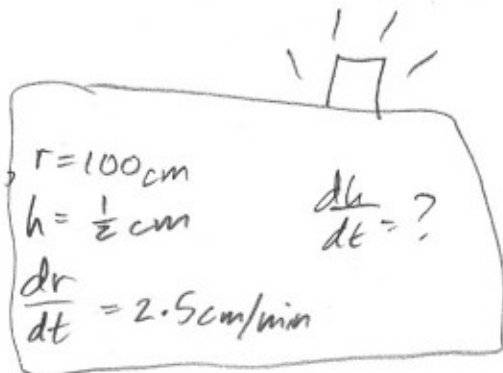 r = 100 cm
h = 1/2 cm
dh/dt = ?
dr/dt = 2.5 cm/min